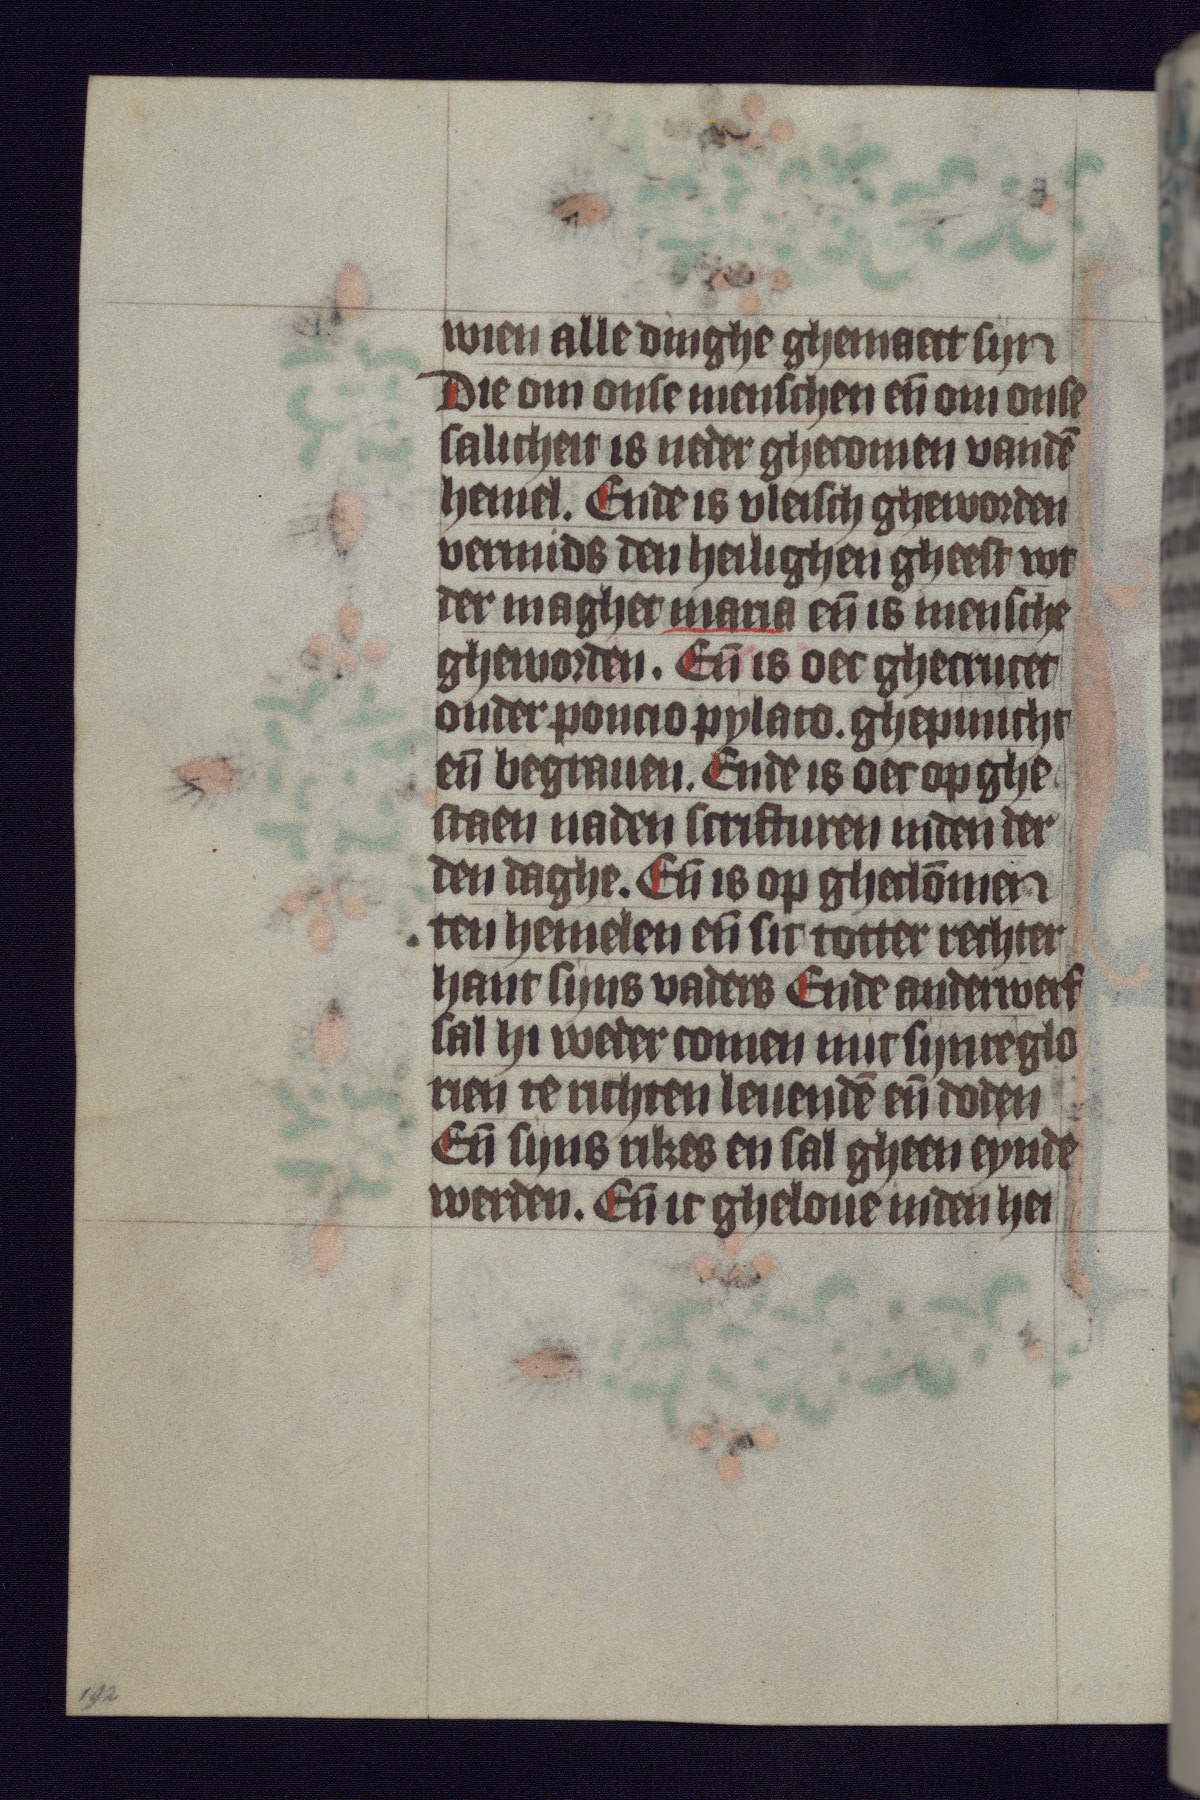 wien alle dinghe ghemaect sijn
Die om onse menschen eñ om onse
salicheit is neder ghecomen vandē
hemel. Ende is vleisch gheworden
vermids den heilighen gheest wt
der maghet maria eñ is mensche
gheworden. Eñ is oec ghecrucet
onder poncio pylato. ghepinicht
eñ begrauen. Ende is oec op ghe
staen naden scrifturen inden der
den daghe. Eñ is op gheclōmen
ten hemelen eñ sit totter rechter
hant sijns vaders Ende anderwerf
sal hi weder comen mit sijnre glo
rien te richten leuendē eñ doden
Eñ sijns rikes en sal gheen eynde
werden. Eñ ic gheloue inden hei
192